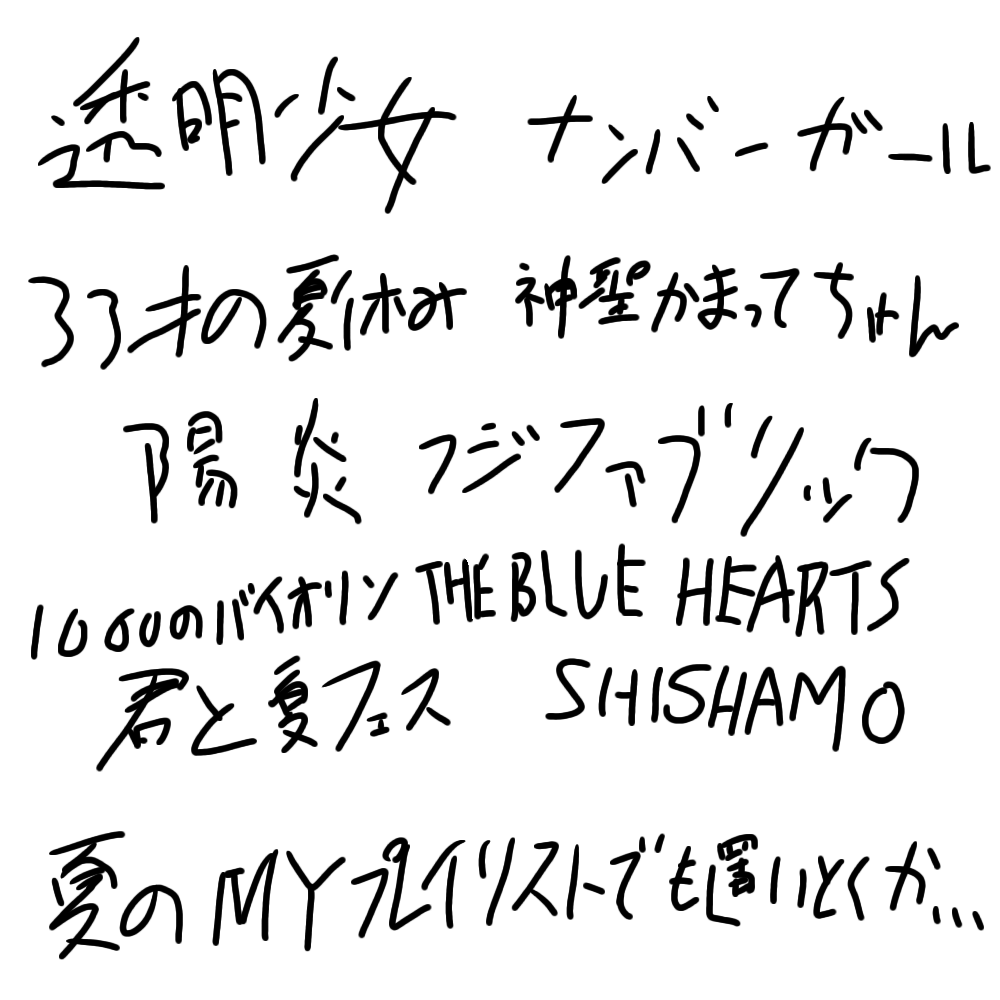 透明少女 ナンバーガール
33才の夏休み 神聖かまってちゃん
陽炎 フジファブリック
1000のバイオリン THE BLUE HEARTS
君と夏フェス SHISHAMO
夏のMYプレイリストでも置いとくか...